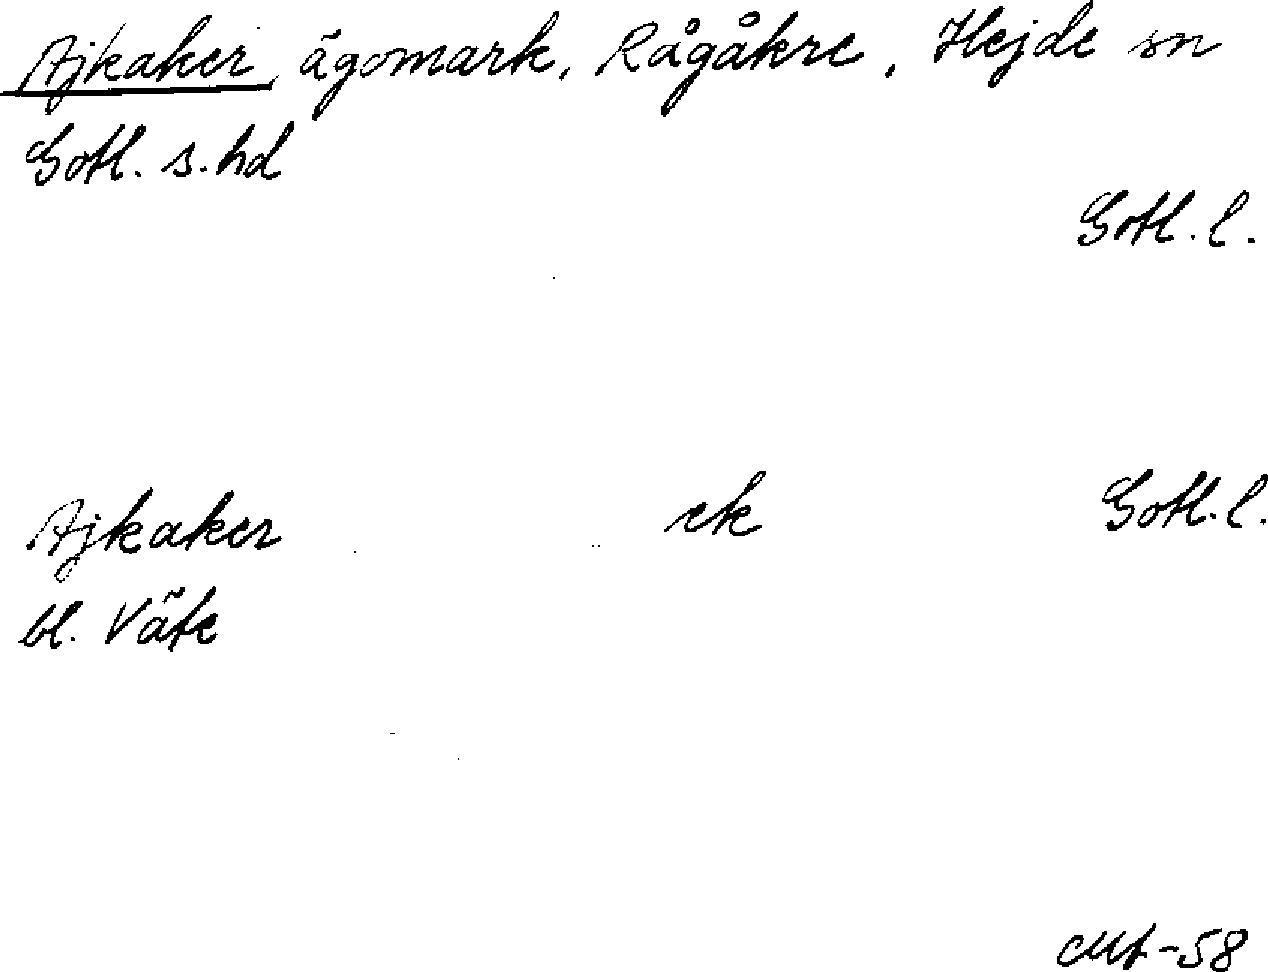 Ajkaker, ägomark, Rågåkre, Hejde sn
Gotl. s. hd
Gotl. l.
Ajkaker ek Gotl. l.
bl. Väte
-58